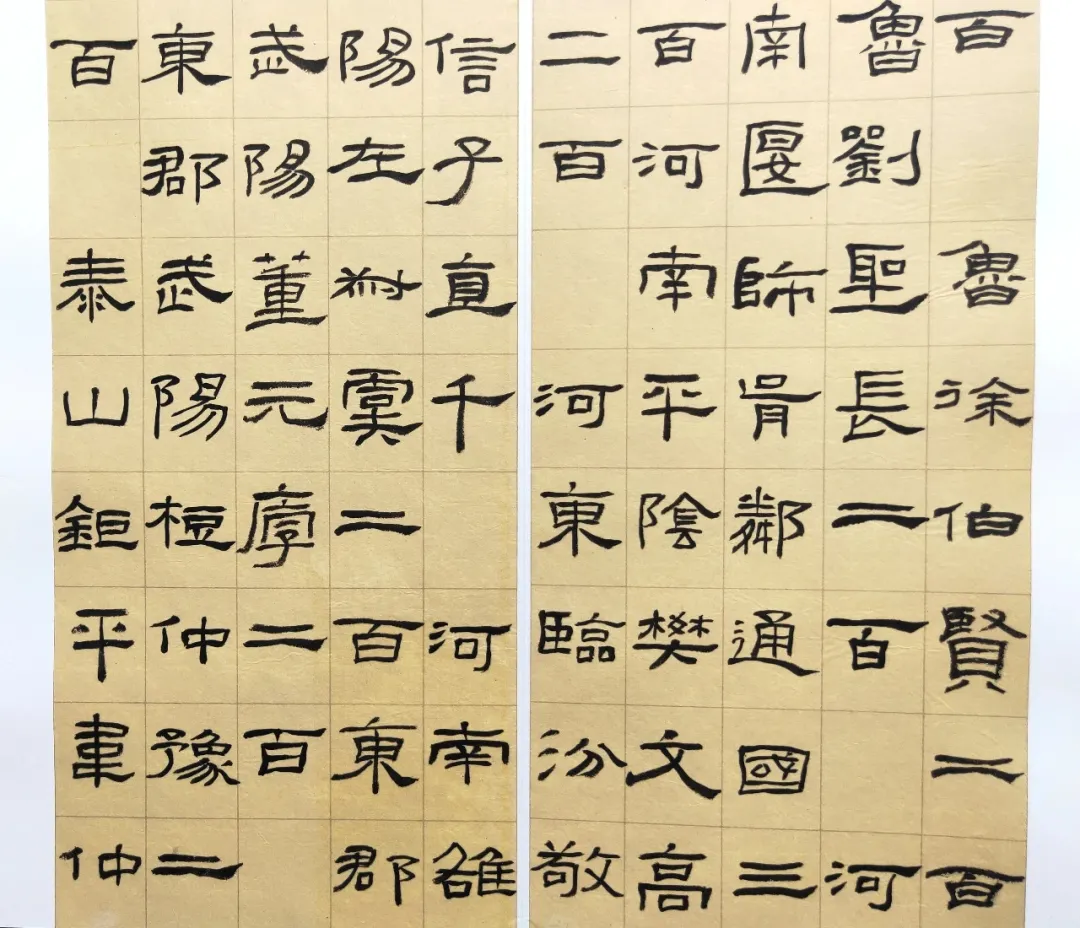 百 魯徐伯賢二百
魯劉聖長二百 河
南匽師胥鄰通國三
百河南平陰樊文高
二百 河東臨汾敬
信子直千 河南雒
陽左叔虞二百東郡
武陽董元厚二百
東郡武陽桓仲豫二
百 泰山鉅平韋仲